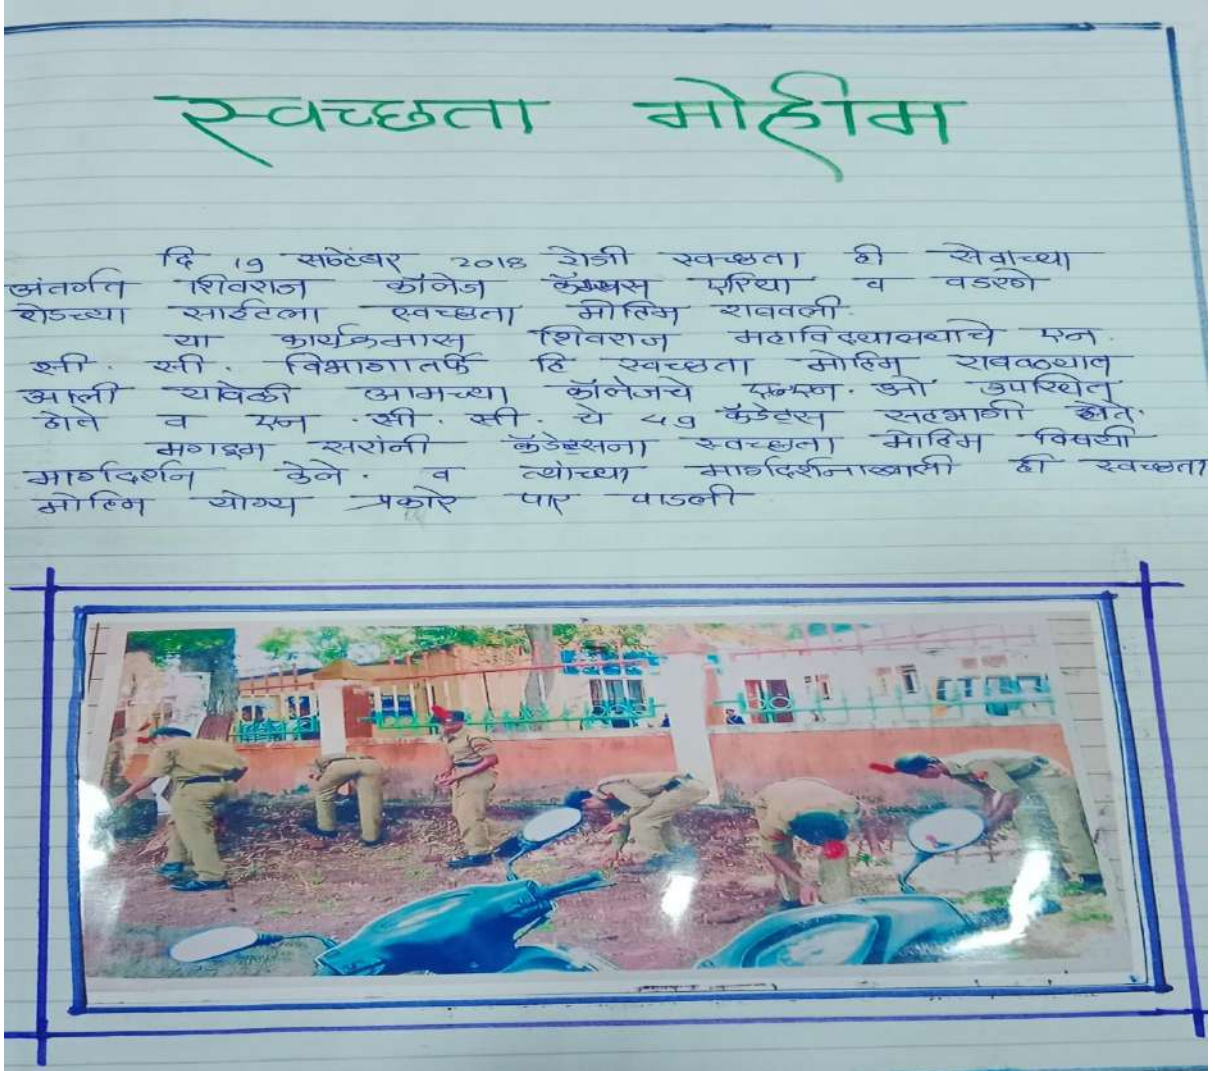 स्वच्छता मोहीम
दि 19 सप्टेंबर 2018 रोजी स्वच्छता ही सेवाच्या
अंतर्गत शिवराज कॉलेज कॅम्पस एरिया व वडरगे
रोडच्या साईटला स्वच्छता मोहिम राबवली.
या कार्यक्रमास शिवराज महाविद्यालयाचे एन.
सी. सी. विभागातर्फे हि स्वच्छता मोहिम राबवण्यात
आली यावेळी आमच्या कॉलेजचे ओ उपस्थित
होते व एन. सी. सी. चे 49 कॅडेट्स सहभागी होते.
मगदूम सरांनी कॅडेट्सना स्वच्छता मोहिम विषयी
मार्गदर्शन केले. व त्यांच्या मार्गदर्शनाखाली ही स्वच्छता
मोहिम योग्य प्रकारे पार पाडली